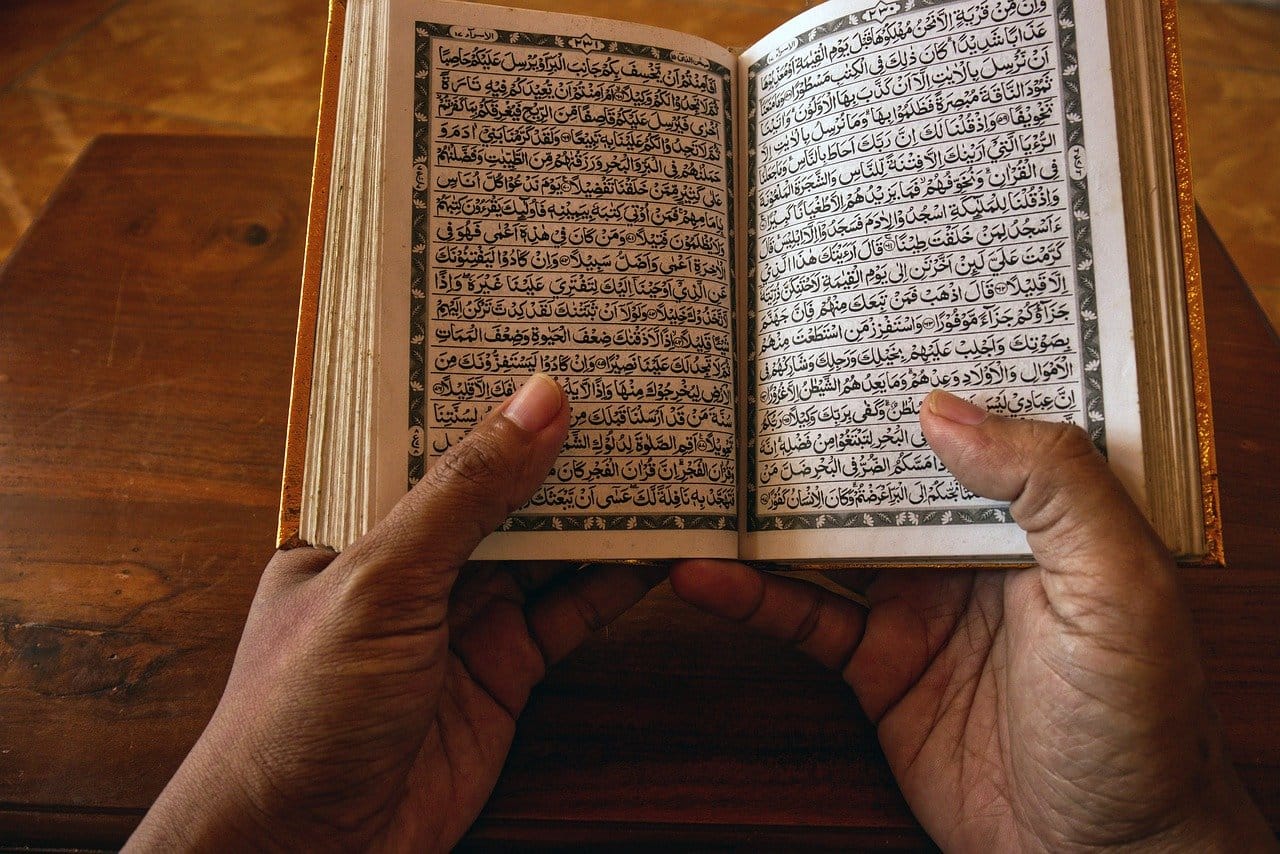 ٢٣٠
وَاِنْ مِّنْ قَرْيَةٍ اِلَّا نَحْنُ مُهْلِكُوْهَا قَبْلَ يَوْمِ الْقِيٰمَةِ اَوْ مُعَذِّبُوْهَا
عَذَابًا شَدِيْدًا ؕ كَانَ ذٰلِكَ فِى الْكِتٰبِ مَسْطُوْرًا ﴿۵۸﴾ وَمَا مَنَعَنَآ
اَنْ نُّرْسِلَ بِالْاٰيٰتِ اِلَّآ اَنْ كَذَّبَ بِهَا الْاَوَّلُوْنَ ؕ وَاٰتَيْنَا
ثَمُوْدَ النَّاقَةَ مُبْصِرَةً فَظَلَمُوْا بِهَا ؕ وَمَا نُرْسِلُ بِالْاٰيٰتِ اِلَّا
تَخْوِيْفًا ﴿۵۹﴾ وَاِذْ قُلْنَا لَكَ اِنَّ رَبَّكَ اَحَاطَ بِالنَّاسِ ؕ وَمَا جَعَلْنَا
الرُّءْيَا الَّتِيْٓ اَرَيْنٰكَ اِلَّا فِتْنَةً لِّلنَّاسِ وَالشَّجَرَةَ الْمَلْعُوْنَةَ
فِى الْقُرْاٰنِ ؕ وَنُخَوِّفُهُمْ فَمَا يَزِيْدُهُمْ اِلَّا طُغْيَانًا كَبِيْرًا ﴿۶۰﴾
وَاِذْ قُلْنَا لِلْمَلٰٓئِكَةِ اسْجُدُوْا لِاٰدَمَ فَسَجَدُوْٓا اِلَّآ اِبْلِيْسَ ؕ قَالَ
ءَاَسْجُدُ لِمَنْ خَلَقْتَ طِيْنًا ﴿۶۱﴾ قَالَ اَرَءَيْتَكَ هٰذَا الَّذِيْ
كَرَّمْتَ عَلَيَّ لَئِنْ اَخَّرْتَنِ اِلٰى يَوْمِ الْقِيٰمَةِ لَاَحْتَنِكَنَّ ذُرِّيَّتَهٗٓ
اِلَّا قَلِيْلًا ﴿۶۲﴾ قَالَ اذْهَبْ فَمَنْ تَبِعَكَ مِنْهُمْ فَاِنَّ جَهَنَّمَ
جَزَآؤُكُمْ جَزَآءً مَّوْفُوْرًا ﴿۶۳﴾ وَاسْتَفْزِزْ مَنِ اسْتَطَعْتَ مِنْهُمْ
بِصَوْتِكَ وَاَجْلِبْ عَلَيْهِمْ بِخَيْلِكَ وَرَجِلِكَ وَشَارِكْهُمْ فِى
الْاَمْوَالِ وَالْاَوْلَادِ وَعِدْهُمْ ؕ وَمَا يَعِدُهُمُ الشَّيْطٰنُ اِلَّا غُرُوْرًا ﴿۶۴﴾
اِنَّ عِبَادِيْ لَيْسَ سُلْطٰنٌ ؕ وَكَفٰى بِرَبِّكَ وَكِيْلًا ﴿۶۵﴾ رَبُّكُمُ
فِى الْبَحْرِ لِتَبْتَغُوْا مِنْ فَضْلِهٖ ؕ اِنَّهٗ
مَسَّكُمُ الضُّرُّ فِى الْبَحْرِ ضَلَّ مَنْ
نَجّٰىكُمْ اِلَى الْبَرِّ اَعْرَضْتُمْ ؕ وَكَانَ الْاِنْسَانُ كَفُوْرًا ﴿۶۷﴾
٢٣١
الاسرآء ١٧
اَفَاَمِنْتُمْ اَنْ يَّخْسِفَ بِكُمْ جَانِبَ الْبَرِّ اَوْ يُرْسِلَ عَلَيْكُمْ حَاصِبًا
ثُمَّ لَا تَجِدُوْا لَكُمْ وَكِيْلًا ﴿۶۸﴾ اَمْ اَمِنْتُمْ اَنْ يُّعِيْدَكُمْ فِيْهِ تَارَةً
اُخْرٰى فَيُرْسِلَ عَلَيْكُمْ قَاصِفًا مِّنَ الرِّيْحِ فَيُغْرِقَكُمْ بِمَا كَفَرْتُمْ
ثُمَّ لَا تَجِدُوْا لَكُمْ عَلَيْنَا بِهٖ تَبِيْعًا ﴿۶۹﴾ وَلَقَدْ كَرَّمْنَا بَنِيْٓ اٰدَمَ وَ
حَمَلْنٰهُمْ فِى الْبَرِّ وَالْبَحْرِ وَرَزَقْنٰهُمْ مِّنَ الطَّيِّبٰتِ وَفَضَّلْنٰهُمْ
عَلٰى كَثِيْرٍ مِّمَّنْ خَلَقْنَا تَفْضِيْلًا ﴿۷۰﴾ يَوْمَ نَدْعُوْا كُلَّ اُنَاسٍۢ
بِاِمَامِهِمْ ۚ فَمَنْ اُوْتِيَ كِتٰبَهٗ بِيَمِيْنِهٖ فَاُولٰٓئِكَ يَقْرَءُوْنَ كِتٰبَهُمْ
وَلَا يُظْلَمُوْنَ فَتِيْلًا ﴿۷۱﴾ وَمَنْ كَانَ فِيْ هٰذِهٖٓ اَعْمٰى فَهُوَ فِى
الْاٰخِرَةِ اَعْمٰى وَاَضَلُّ سَبِيْلًا ﴿۷۲﴾ وَاِنْ كَادُوْا لَيَفْتِنُوْنَكَ
عَنِ الَّذِيْٓ اَوْحَيْنَآ اِلَيْكَ لِتَفْتَرِيَ عَلَيْنَا غَيْرَهٗ ۖ وَاِذًا
لَّاتَّخَذُوْكَ خَلِيْلًا ﴿۷۳﴾ وَلَوْلَآ اَنْ ثَبَّتْنٰكَ لَقَدْ كِدْتَّ تَرْكَنُ اِلَيْهِمْ
شَيْئًا قَلِيْلًا ﴿۷۴﴾ اِذًا لَّاَذَقْنٰكَ ضِعْفَ الْحَيٰوةِ وَضِعْفَ الْمَمَاتِ
ثُمَّ لَا تَجِدُ لَكَ عَلَيْنَا نَصِيْرًا ﴿۷۵﴾ وَاِنْ كَادُوْا لَيَسْتَفِزُّوْنَكَ مِنَ
الْاَرْضِ لِيُخْرِجُوْكَ مِنْهَا وَاِذًا لَّا خِلٰفَكَ اِلَّا قَلِيْلًا ﴿۷۶﴾
سُنَّةَ مَنْ قَدْ اَرْسَلْنَا قَبْلَكَ مِنْ لِسُنَّتِنَا
تَحْوِيْلًا ﴿۷۷﴾ اَقِمِ الصَّلٰوةَ لِدُلُوْكِ
وَقُرْاٰنَ الْفَجْرِ ؕ اِنَّ قُرْاٰنَ الْفَجْرِ كَانَ
فَتَهَجَّدْ بِهٖ نَافِلَةً لَّكَ ۖ عَسٰٓى اَنْ يَّبْعَثَكَ